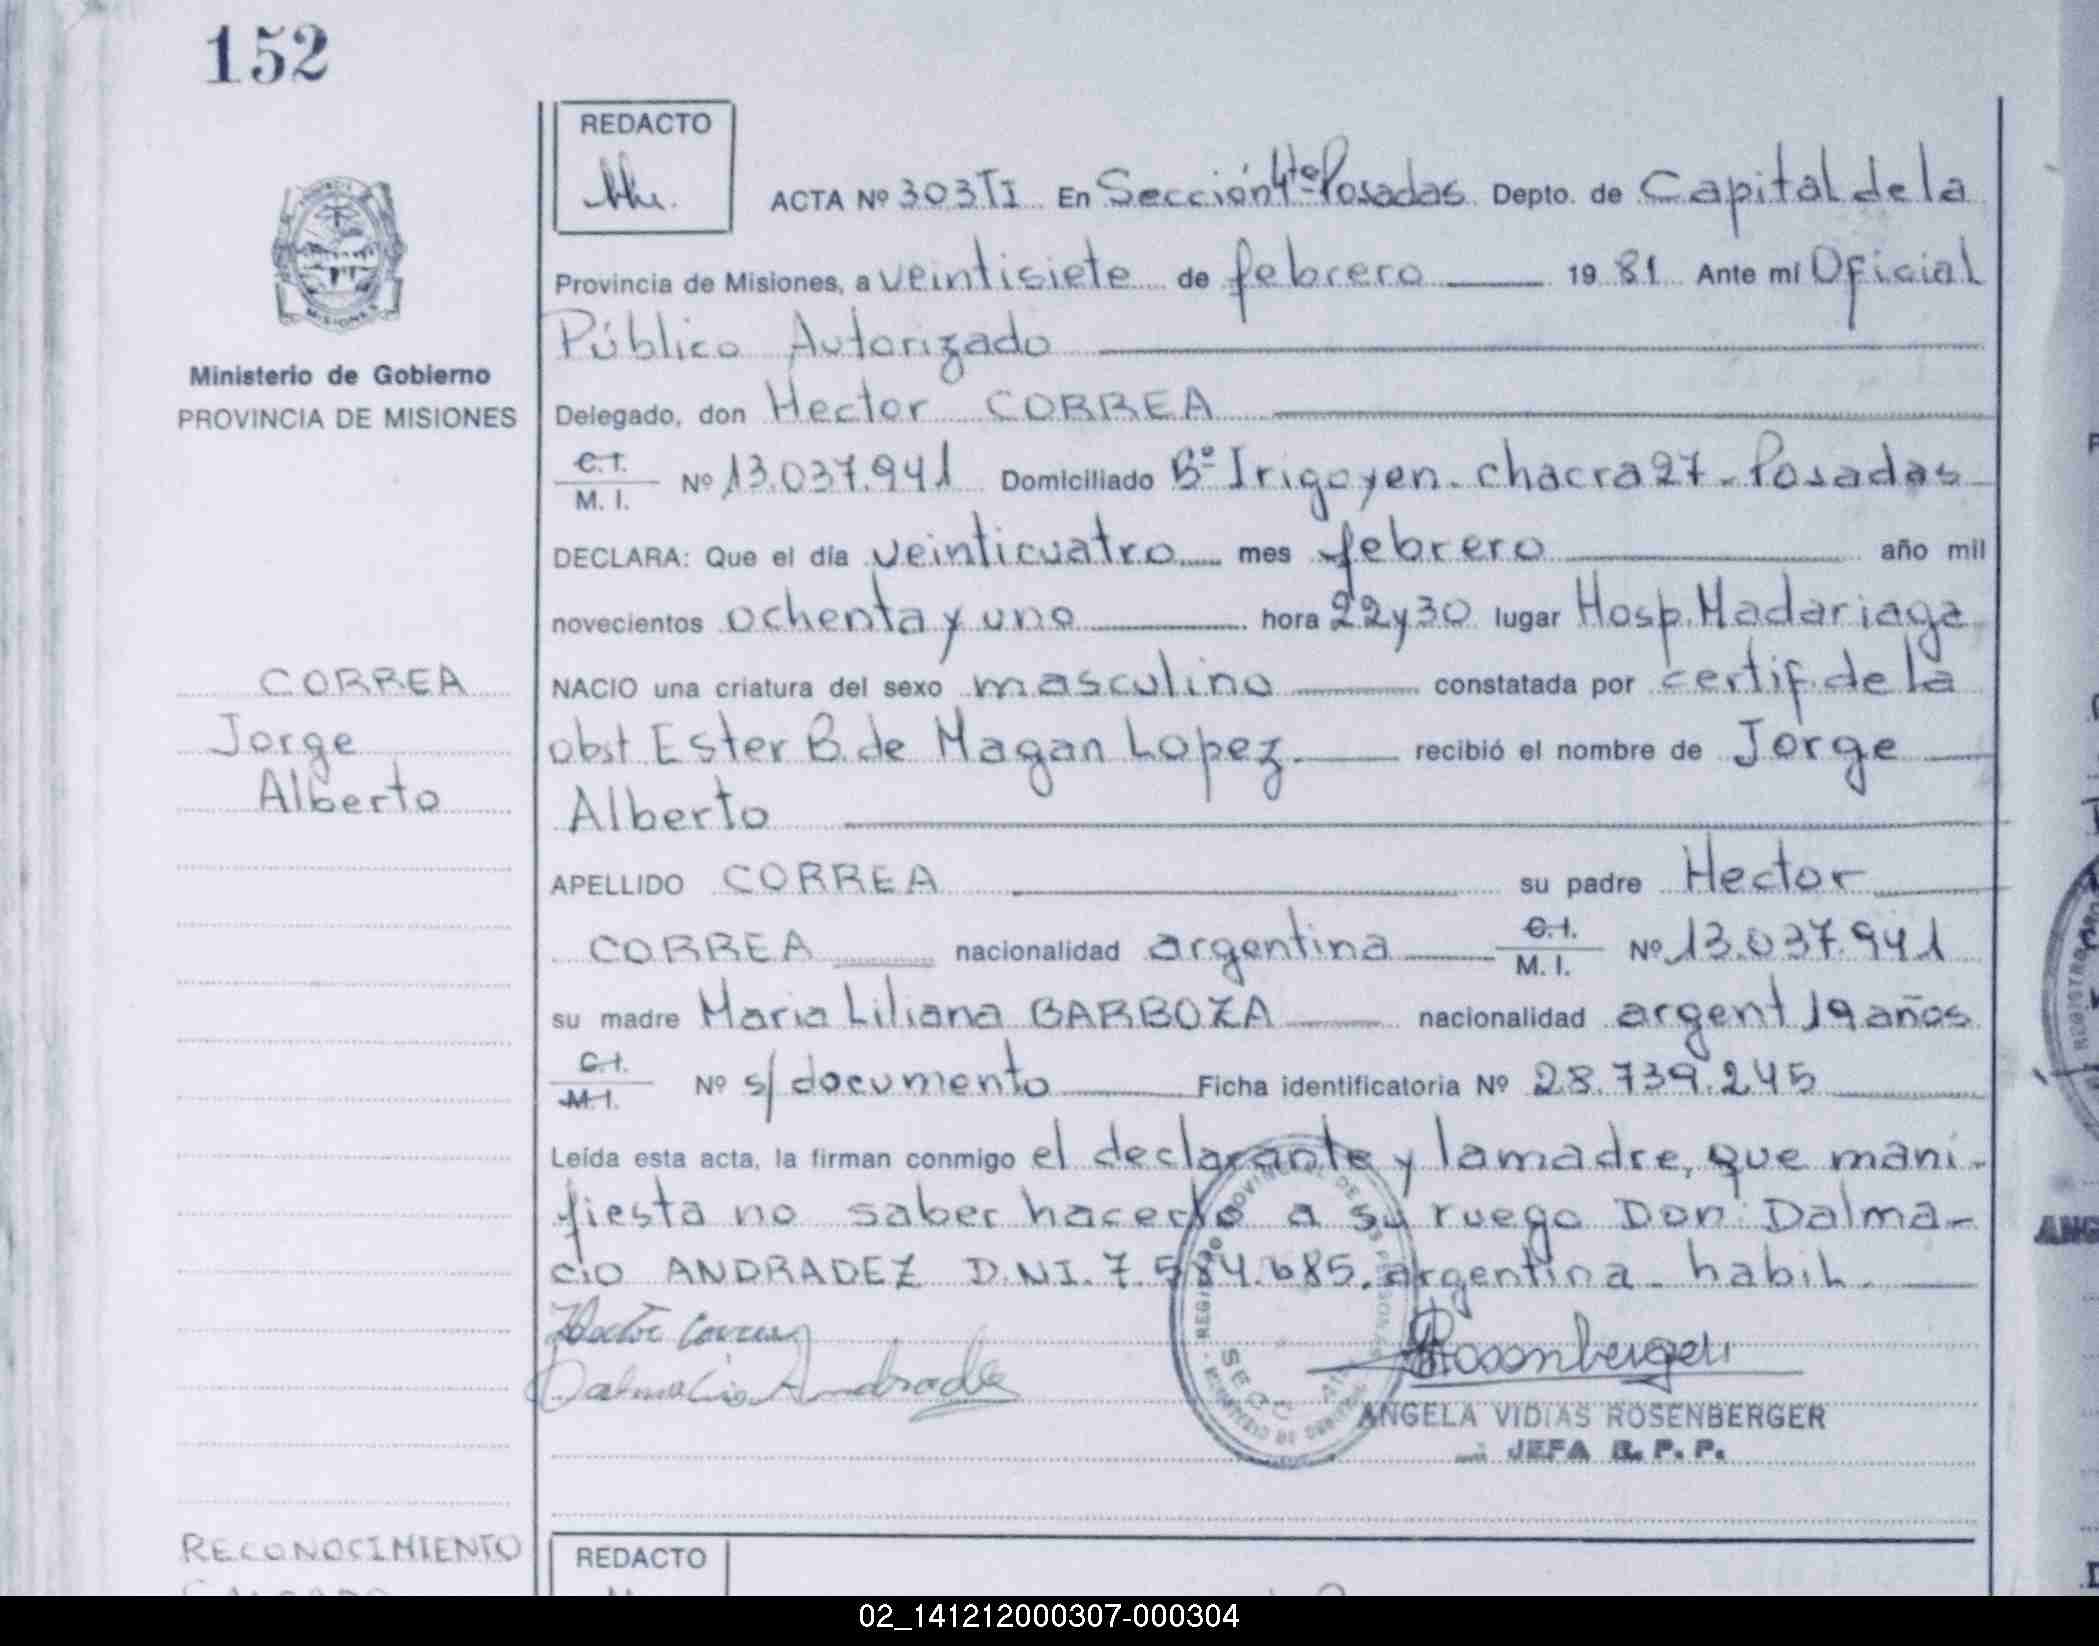 152
REDACTO
ACTA Nº 303TI En Sección 4te Posadas Depto. de Capital de la
Provincia de Misiones, a veintisiete de febrero 19 81 Ante mí Oficial
Público Autorizado
Ministerio de Gobierno
PROVINCIA DE MISIONES
Delegado, don Hector CORREA
C.I. M. I. Nº 13.037.941 Domiciliado Bº Irigoyen - chacra 27 - Posadas
DECLARA: Que el día veinticuatro mes febrero año mil
novecientos ochenta y uno hora 22 y 30 lugar Hosp. Madariaga
CORREA
Jorge
Alberto
NACIO una criatura del sexo masculino constatada por certif. de la
obst. Ester B. de Magan Lopez. recibió el nombre de Jorge
Alberto
APELLIDO CORREA su padre Hector
CORREA nacionalidad argentina C.I. M. I. Nº 13.037.941
su madre Maria Liliana BARBOZA nacionalidad argent 19 años
C.I. M.I. Nº s/documento Ficha identificatoria Nº 28.739.245
Leída esta acta, la firman conmigo el declarante y la madre, que mani-
fiesta no saber hacerlo a su ruego Don Dalma-
cio ANDRADEZ D.NI. 7.584.685. argentina - habil.
Hector Correa
Dalmacio Andrade
Rosenberger
ANGELA VIDIAS ROSENBERGER
JEFA R. P. P.
RECONOCIMIENTO
REDACTO
ANG
02_141212000307-000304